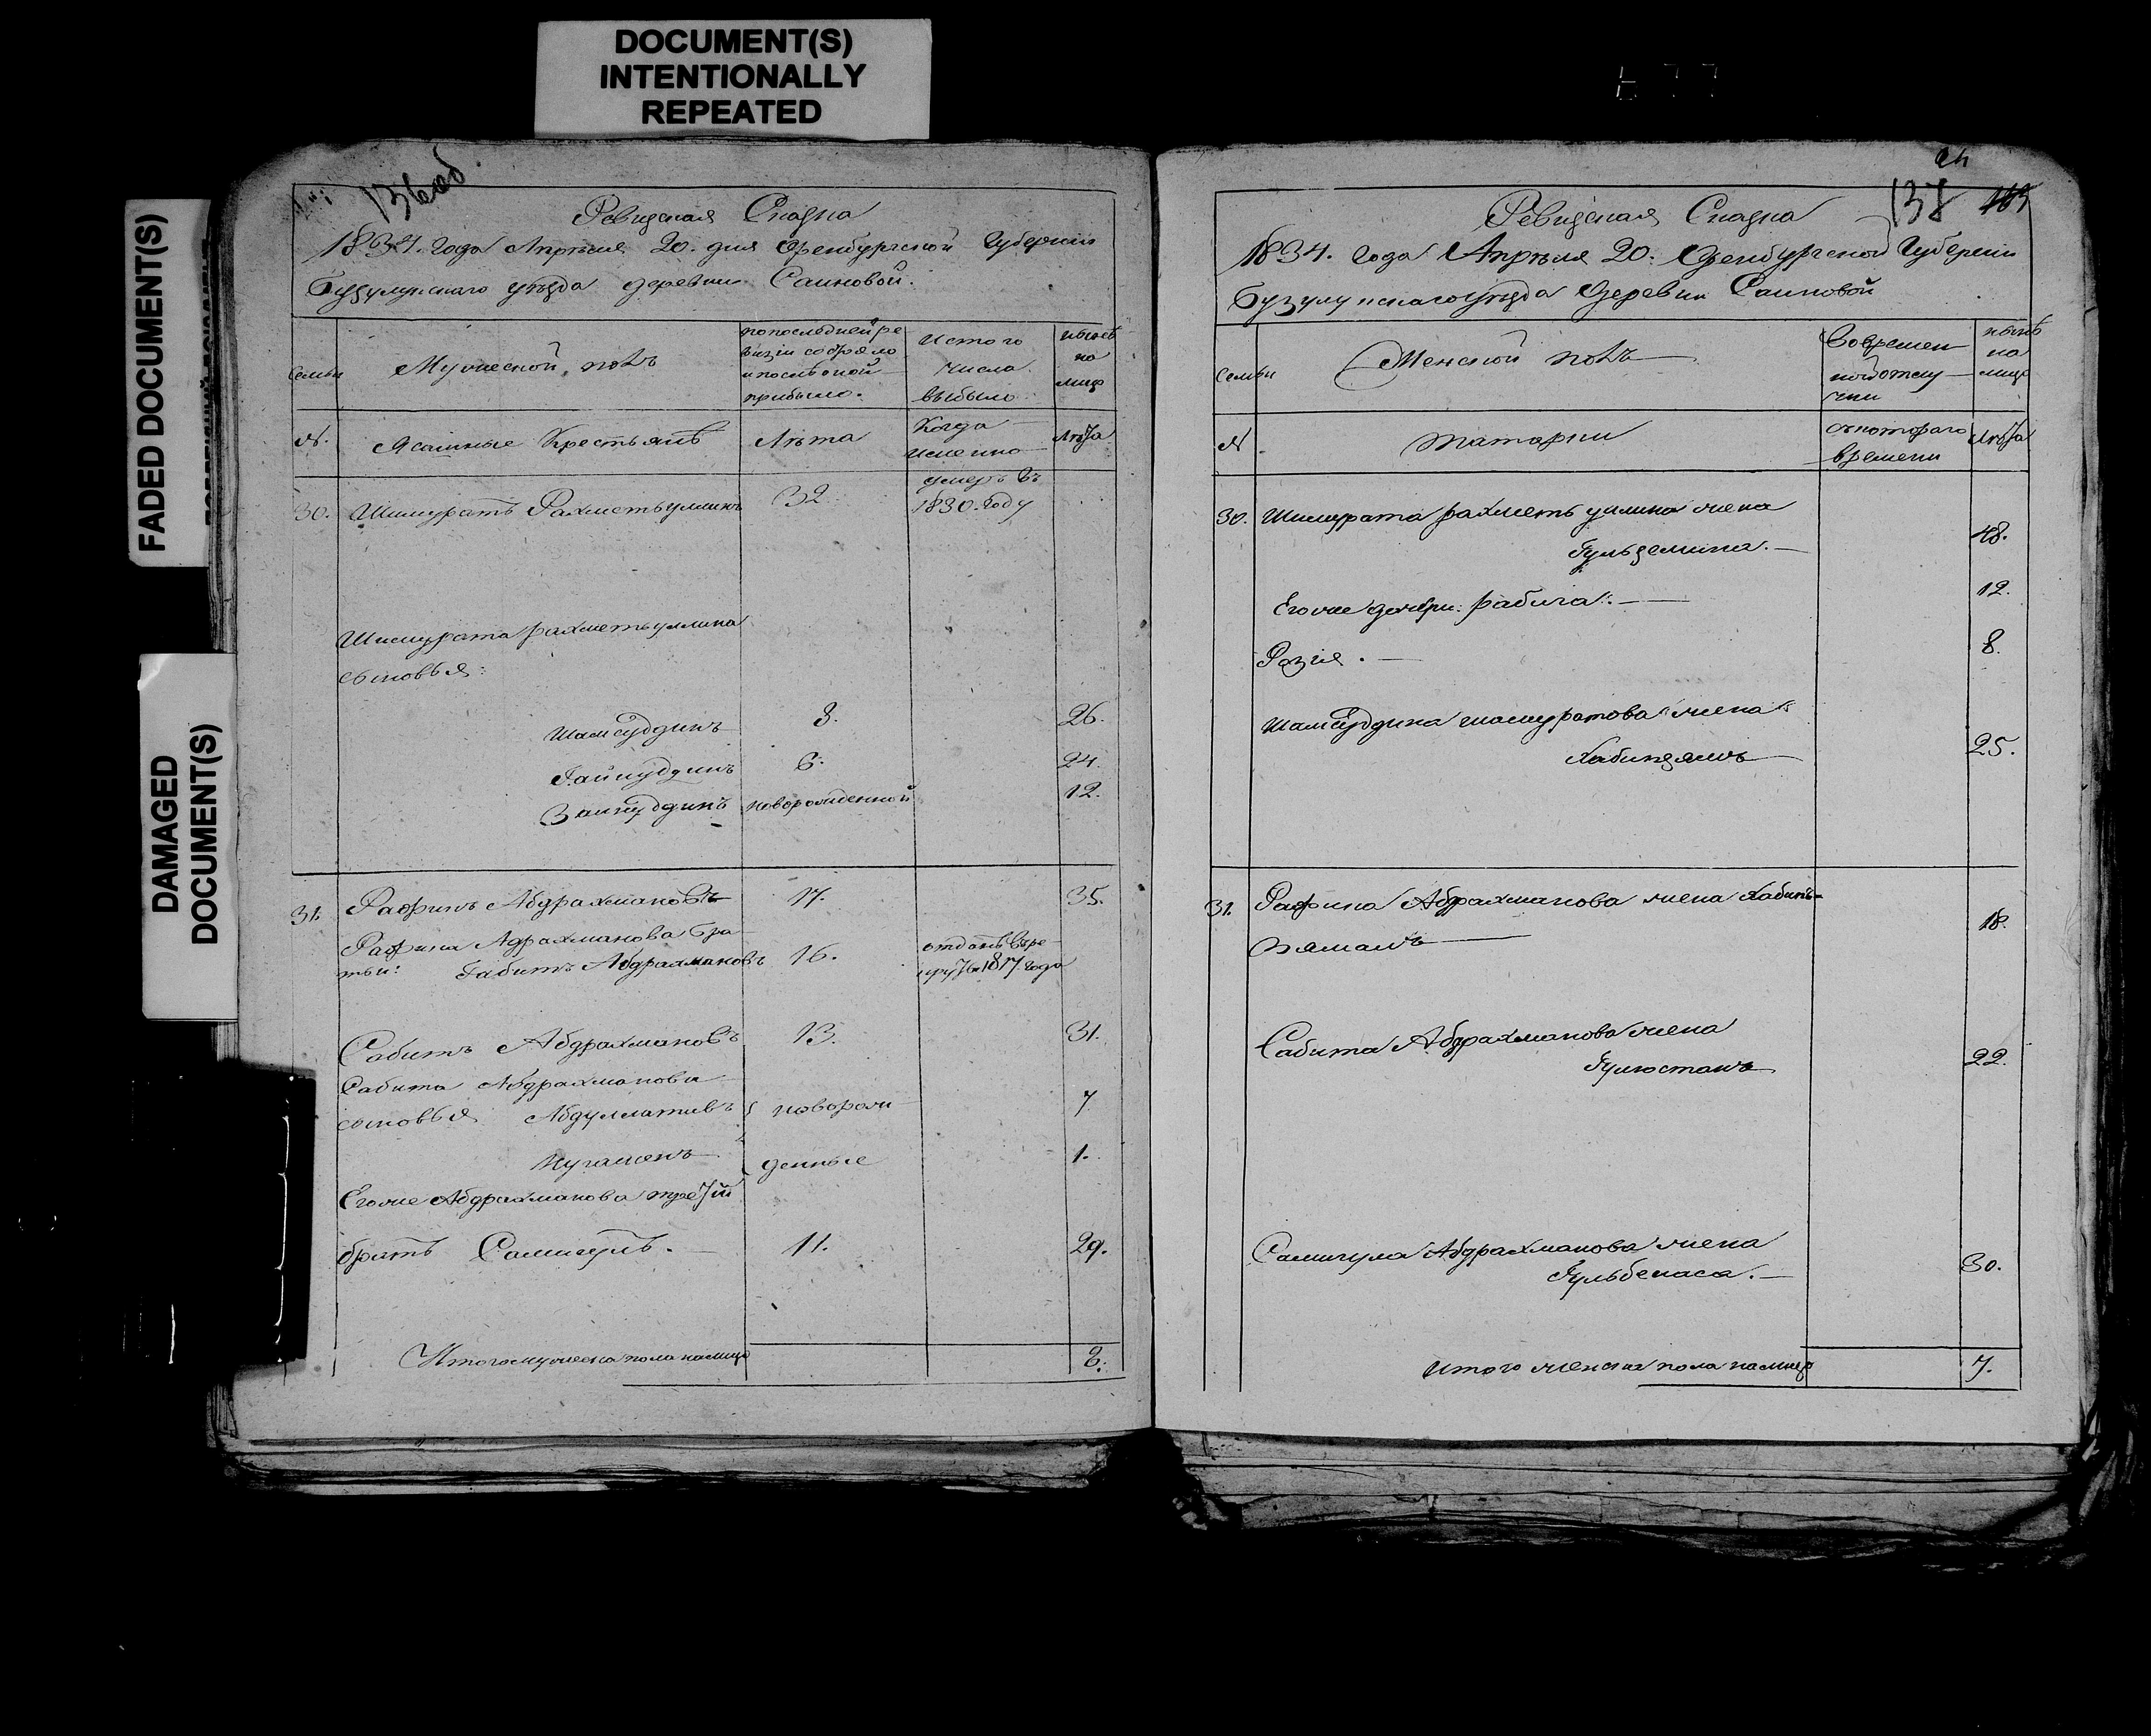 DOCUMENT(S)
INTENTIONALLY
REPEATED
FADED DOCUMENT(S)
DAMAGED
DOCUMENT(S)
136об.
Ревизская Сказка
1834. года Апреля 20. дня Оренбургской Губернии
Бузулукскаго уезда деревни Саиновой.
Семьи
Мужеской полъ
по последней ре-
визіи состояло
и после оной
прибыло.
Изтого
числа
выбыло
ныне
на
лицо
№.
Ясашные Крестьяне
Лета
Когда
именно
Лета
30. Шимуратъ Рахметъуллинъ 32 умеръ въ
1830. году
Шимурата рахметъуллина
сыновья:
Шамсуддинъ 8. 26.
Гайнуддинъ 6. 24.
Заинуддинъ новорожденной 12.
31. Рафикъ Абдрахмановъ 17. 35.
Рафика Адрахманова бра-
тьи: Габитъ Абдрахмановъ 16. отданъ въ ре-
круты 1817. года
Сабитъ Абдрахмановъ 13. 31.
Сабита Абдрахманова
сыновья Абдуллативъ новорож- 7
денные 1.
Егоже Абдрахманова третій
братъ Самигулъ. 11. 29.
Итого мужеска пола налицо 8.
24
138 103
Ревизская Сказка
1834. года Апреля 20. Оренбургской Губерніи
Бузулукскаго уезда Деревни Саиновой
Семьи
Женской полъ
Вовремен
ной отлу
чки
ныне
на
лицо
№
татарки
съ котораго
времени
Лета
30. Шимурата рахметъуллина жена
Гульземина. 48.
Егоже дочери: рабига. 12.
Разія. 8.
Шамсуддина шимуратова жена
Хабизямъ 25.
31. Рафика Абдрахманова жена Хабиб-
зямалъ 18.
Сабита Абдрахманова жена
Гулюстанъ 22.
Самигула Абдрахманова жена
Гульбенаса. 30.
Итого женска пола налицо 7.